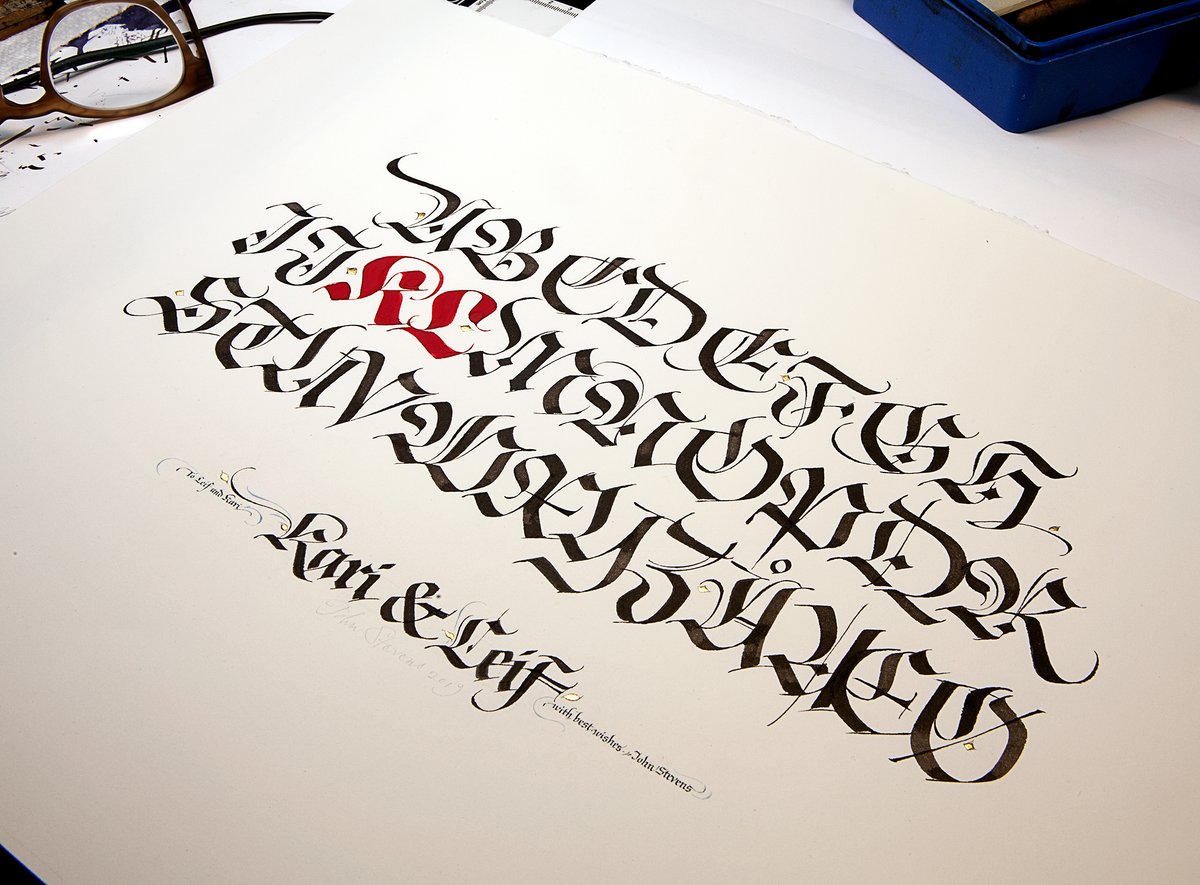 A B C D E F G H
I J K L M N O P Q R
S T U V W X Y Z Å Æ Ø
To Leif and Kari
Kari & Leif
with best wishes, John Stevens
John Stevens 2019